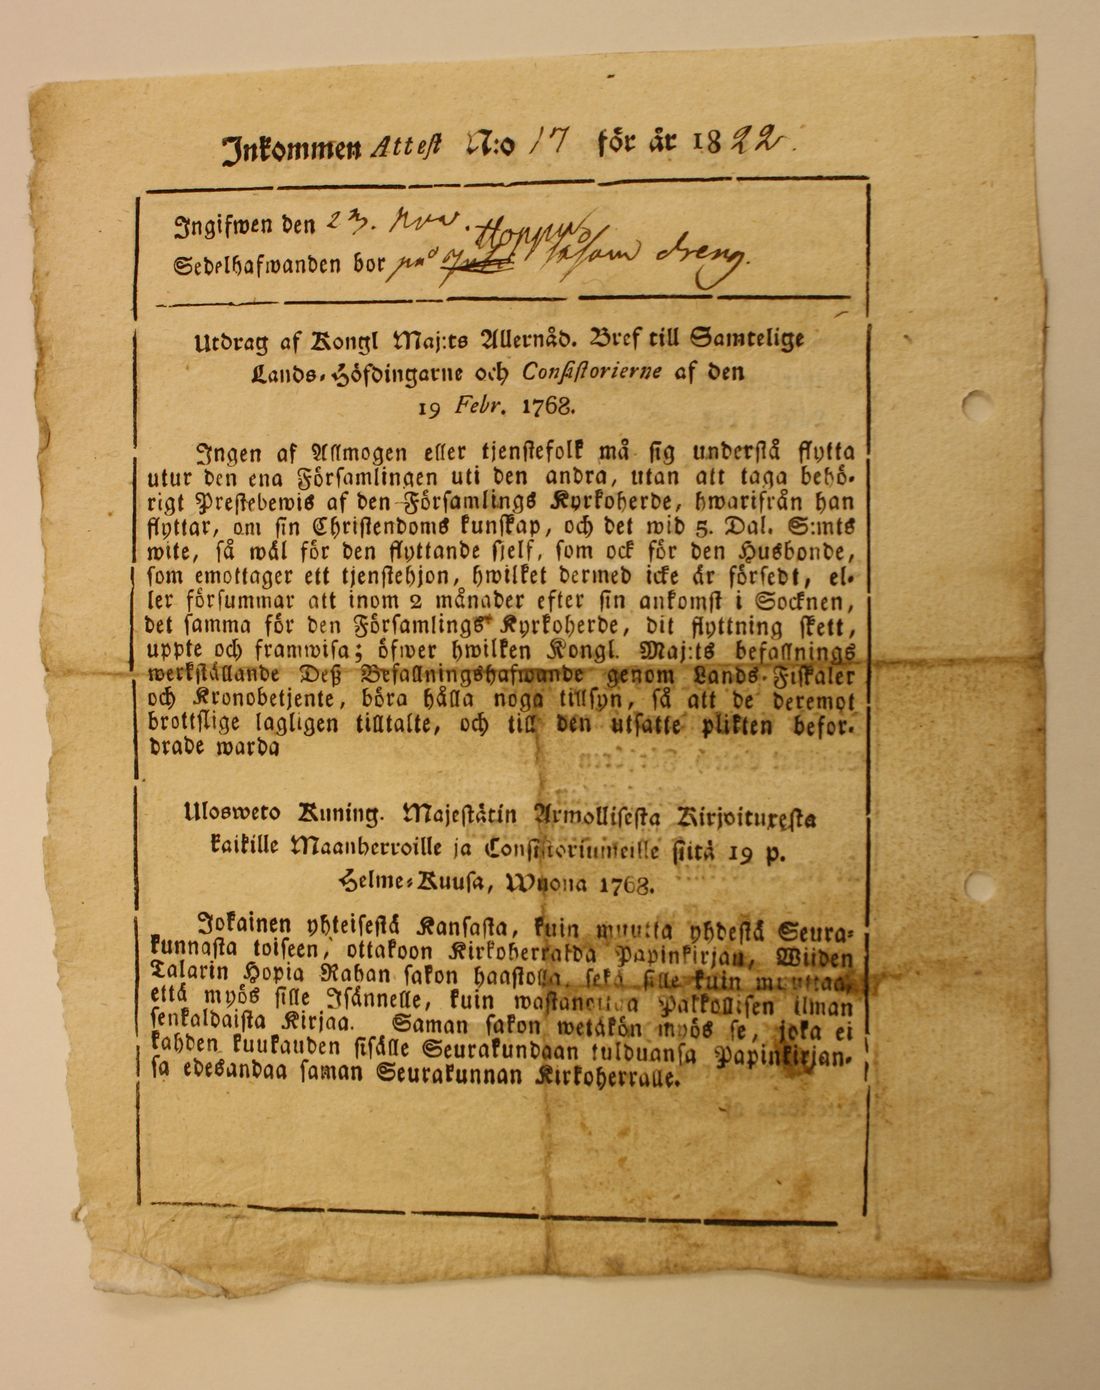 Inkommen Attest N:o 17 för år 1822.
Ingifwen den 23. Nov.
Hoppu
Sedelhafwanden bor på såsom dreng.
Utdrag af Kongl Maj:ts Allernåd. Bref till Samtelige
Lands-Höfdingarne och Consistorierne af den
19 Febr. 1768.
Ingen af Allmogen eller tjenstefolk må sig understå flytta
utur den ena Församlingen uti den andra, utan att taga behö-
rigt Prestebewis af den Församlings Kyrkoherde, hwarifrån han
flyttar, om sin Christendoms kunskap, och det wid 5. Dal. S:mts
wite, så wäl för den flyttande sjelf, som ock för den Husbonde,
som emottager ett tjenstehjon, hwilket dermed icke är försedt, el-
ler försummar att inom 2 månader efter sin ankomst i Socknen,
det samma för den Församlings Kyrkoherde, dit flyttning skett,
uppte och framwisa; öfwer hwilken Kongl. Maj:ts befallnings
werkställande Deß Befallningshafwande genom Lands-Fiskaler
och Kronobetjente, böra hålla noga tillsyn, så att de deremot
brottslige lagligen tilltalte, och till den utsatte plikten befor-
drade warda
Ulosweto Kuning. Majestätin Armollisesta Kirjoituxesta
kaikille Maanherroille ja Consistoriumeille siitä 19 p.
Helme-Kuusa, Wuona 1768.
Jokainen yhteisestä Kansasta, kuin muutta yhdestä Seura-
kunnasta toiseen, ottakoon Kirkoherralda Papinkirjan, Wiiden
Talarin Hopia Rahan sakon haastolla, sekä sille kuin muuttaa,
että myös sille Isännelle, kuin wastanottaa Palkollisen ilman
senkaldaista Kirjaa. Saman sakon wetäkön myös se, joka ei
kahden kuukauden sisälle Seurakundaan tulduansa Papinkirjan-
sa edesandaa saman Seurakunnan Kirkoherralle.